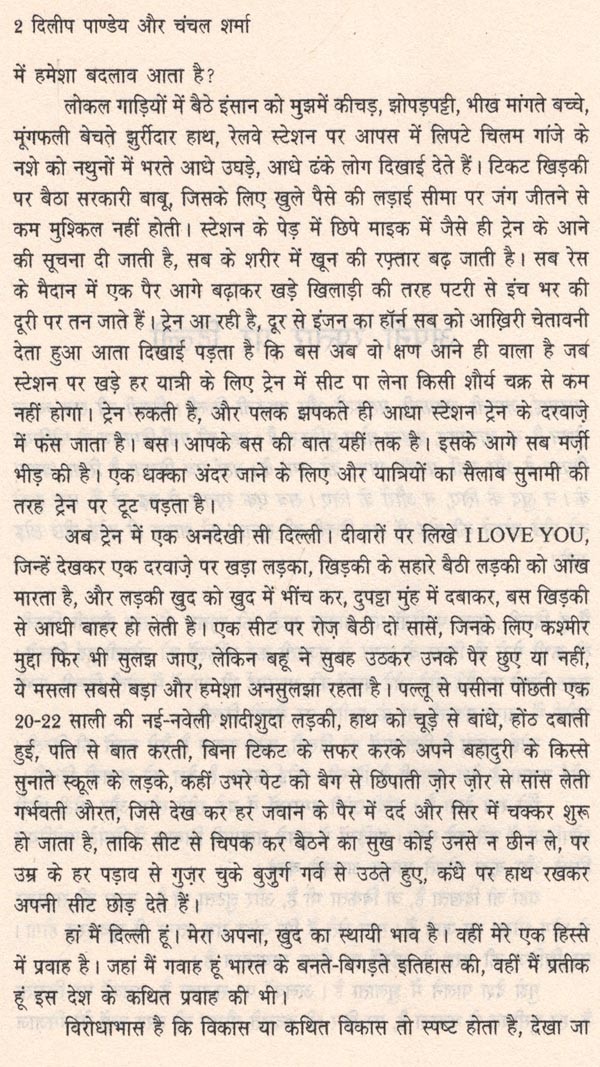 2 दिलीप पाण्डेय और चंचल शर्मा
में हमेशा बदलाव आता है?
लोकल गाड़ियों में बैठे इंसान को मुझमें कीचड़, झोपड़पट्टी, भीख मांगते बच्चे,
मूंगफली बेचते झुर्रीदार हाथ, रेलवे स्टेशन पर आपस में लिपटे चिलम गांजे के
नशे को नथुनों में भरते आधे उघड़े, आधे ढंके लोग दिखाई देते हैं। टिकट खिड़की
पर बैठा सरकारी बाबू, जिसके लिए खुले पैसे की लड़ाई सीमा पर जंग जीतने से
कम मुश्किल नहीं होती। स्टेशन के पेड़ में छिपे माइक में जैसे ही ट्रेन के आने
की सूचना दी जाती है, सब के शरीर में खून की रफ़्तार बढ़ जाती है। सब रेस
के मैदान में एक पैर आगे बढ़ाकर खड़े खिलाड़ी की तरह पटरी से इंच भर की
दूरी पर तन जाते हैं। ट्रेन आ रही है, दूर से इंजन का हॉर्न सब को आख़िरी चेतावनी
देता हुआ आता दिखाई पड़ता है कि बस अब वो क्षण आने ही वाला है जब
स्टेशन पर खड़े हर यात्री के लिए ट्रेन में सीट पा लेना किसी शौर्य चक्र से कम
नहीं होगा। ट्रेन रुकती है, और पलक झपकते ही आधा स्टेशन ट्रेन के दरवाज़े
में फंस जाता है। बस। आपके बस की बात यहीं तक है। इसके आगे सब मर्ज़ी
भीड़ की है। एक धक्का अंदर जाने के लिए और यात्रियों का सैलाब सुनामी की
तरह ट्रेन पर टूट पड़ता है।
अब ट्रेन में एक अनदेखी सी दिल्ली। दीवारों पर लिखे I LOVE YOU,
जिन्हें देखकर एक दरवाज़े पर खड़ा लड़का, खिड़की के सहारे बैठी लड़की को आंख
मारता है, और लड़की खुद को खुद में भींच कर, दुपट्टा मुंह में दबाकर, बस खिड़की
से आधी बाहर हो लेती है। एक सीट पर रोज़ बैठी दो सासें, जिनके लिए कश्मीर
मुद्दा फिर भी सुलझ जाए, लेकिन बहू ने सुबह उठकर उनके पैर छुए या नहीं,
ये मसला सबसे बड़ा और हमेशा अनसुलझा रहता है। पल्लू से पसीना पोंछती एक
20-22 साली की नई-नवेली शादीशुदा लड़की, हाथ को चूड़े से बांधे, होंठ दबाती
हुई, पति से बात करती, बिना टिकट के सफर करके अपने बहादुरी के किस्से
सुनाते स्कूल के लड़के, कहीं उभरे पेट को बैग से छिपाती ज़ोर ज़ोर से सांस लेती
गर्भवती औरत, जिसे देख कर हर जवान के पैर में दर्द और सिर में चक्कर शुरू
हो जाता है, ताकि सीट से चिपक कर बैठने का सुख कोई उनसे न छीन ले, पर
उम्र के हर पड़ाव से गुज़र चुके बुजुर्ग गर्व से उठते हुए, कंधे पर हाथ रखकर
अपनी सीट छोड़ देते हैं।
हां मैं दिल्ली हूं। मेरा अपना, खुद का स्थायी भाव है। वहीं मेरे एक हिस्से
में प्रवाह है। जहां मैं गवाह हूं भारत के बनते-बिगड़ते इतिहास की, वहीं मैं प्रतीक
हूं इस देश के कथित प्रवाह की भी।
विरोधाभास है कि विकास या कथित विकास तो स्पष्ट होता है, देखा जा